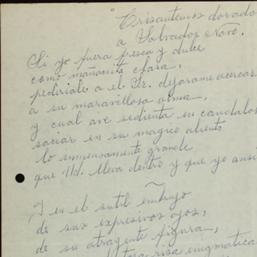 "Crisantemos dorados
a Salvador Novo.
Si yo fuera fresca y dulce
como mañanita clara,
pediríale a el Sr. dejarame acercar
a su maravillosa alma,
y cual ave sedienta su candalos
saciar en su magno aliento
lo inmensamente grande
que Ud. lleva dentro y que yo
Y en el sutil embrujo
de sus expresivos ojos,
de su atrayente figura,
rosa enigmatica